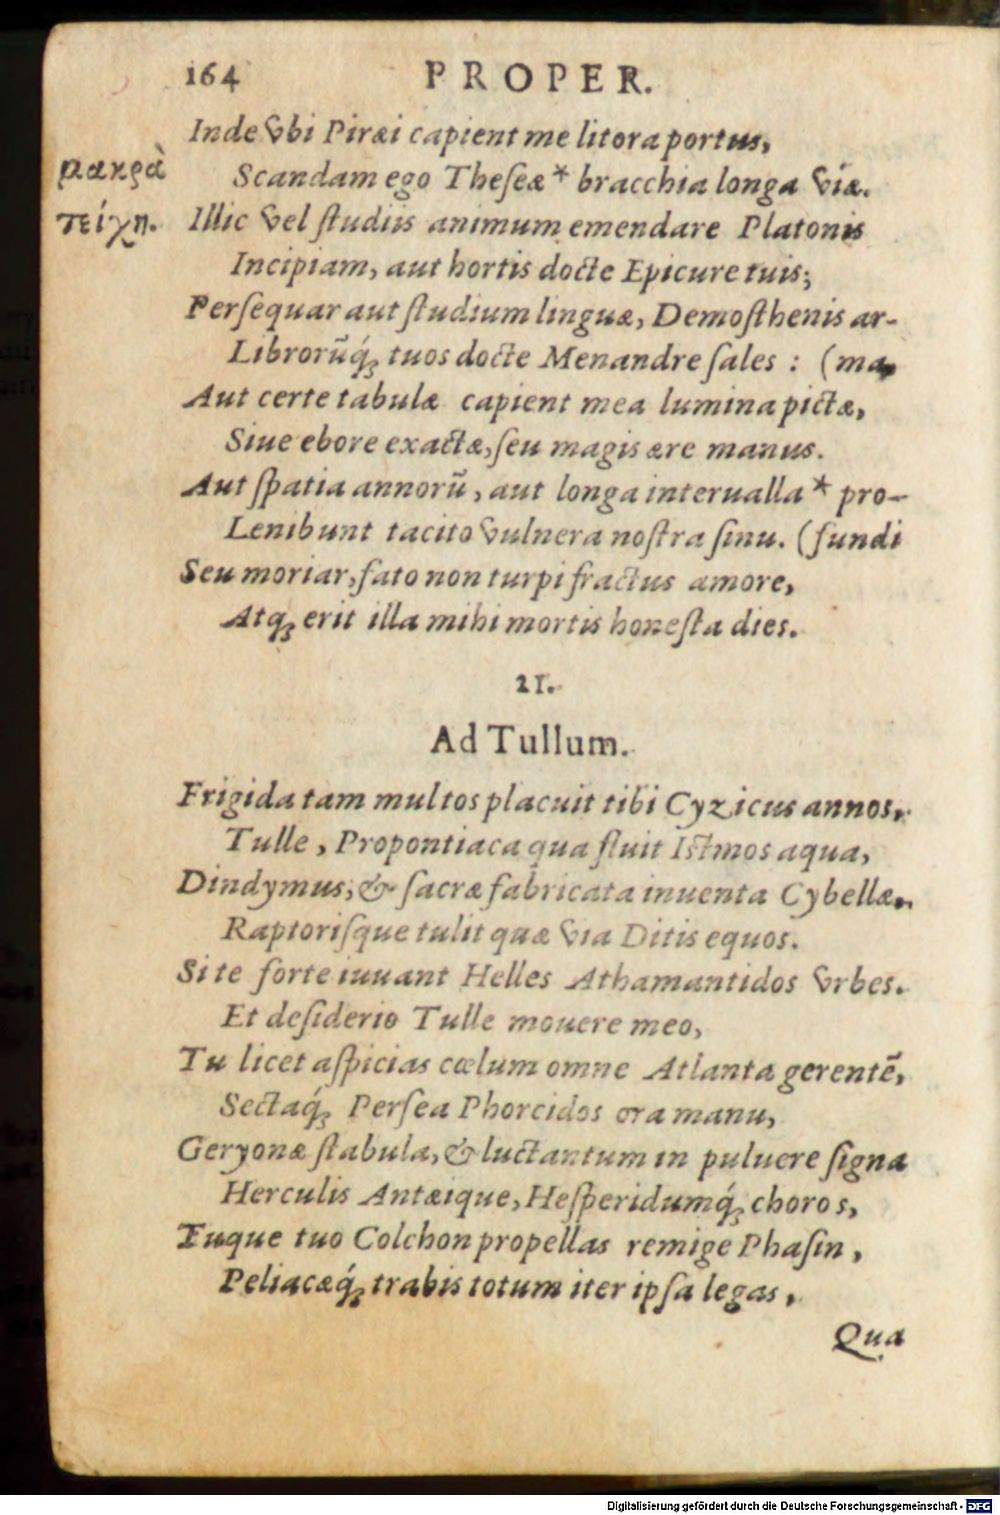 164 PROPER.
Inde vbi Piræi capient me litora portus,
μακρὰ Scandam ego Theseæ * bracchia longa viæ.
τείχη. Illic vel studiis animum emendare Platonis
Incipiam, aut hortis docte Epicure tuis;
Persequar aut studium linguæ, Demosthenis ar-
Librorũq́; tuos docte Menandre sales : (ma,
Aut certe tabulæ capient mea lumina pictæ,
Siue ebore exactæ, seu magis ære manus.
Aut spatia annorũ, aut longa interualla * pro-
Lenibunt tacito vulnera nostra sinu. (fundi
Seu moriar, fato non turpi fractus amore,
Atq; erit illa mihi mortis honesta dies.
21.
Ad Tullum.
Frigida tam multos placuit tibi Cyzicus annos,
Tulle, Propontiaca qua fluit Istmos aqua,
Dindymus, & sacræ fabricata inuenta Cybellæ,
Raptorisque tulit quæ via Ditis equos.
Si te forte iuuant Helles Athamantidos vrbes.
Et desiderio Tulle mouere meo,
Tu licet aspicias cœlum omne Atlanta gerentẽ,
Sectaq́; Persea Phorcidos ora manu,
Geryonæ stabula, & luctantum in puluere signa
Herculis Antæique, Hesperidumq́; choros,
Tuque tuo Colchon propellas remige Phasin,
Peliacæq́; trabis totum iter ipsa legas,
Qua
Digitalisierung gefördert durch die Deutsche Forschungsgemeinschaft - DFG